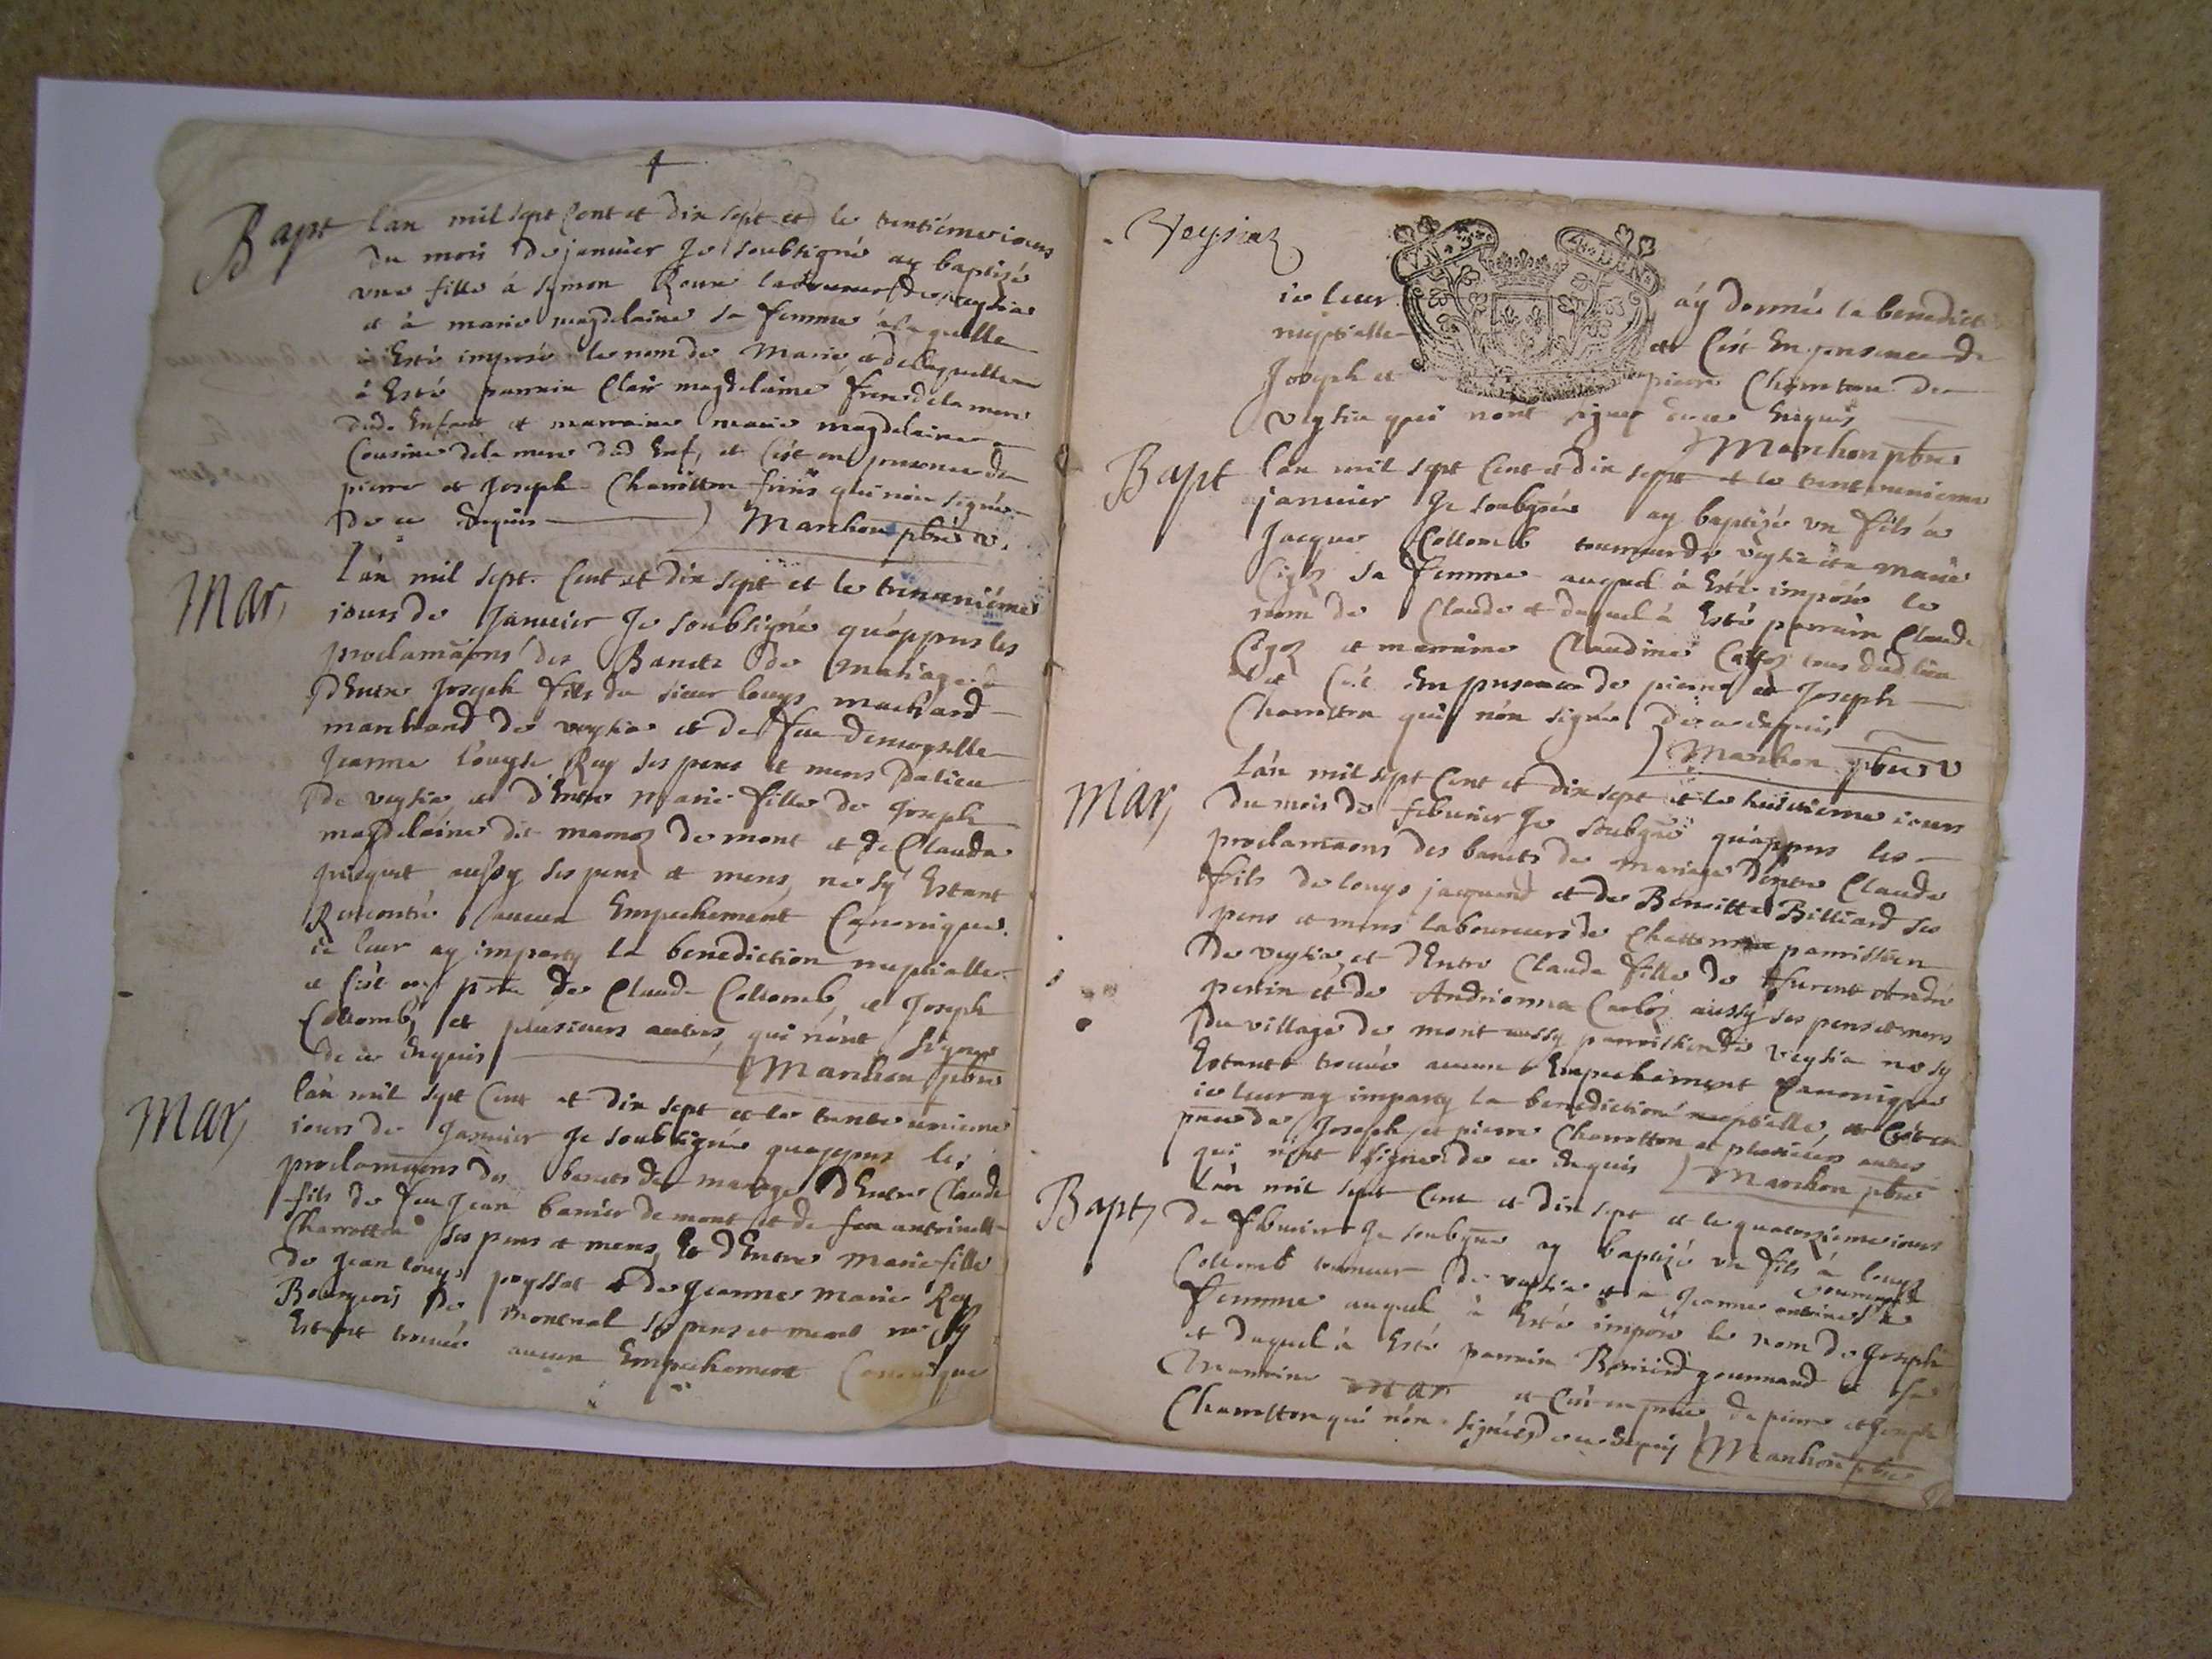 Bapt
l'an mil sept Cent et dix sept et le trentiéme iours
du mois de januier Je soubsigné ay baptizé
vne fille à symon Roux laboureur de veysia
et à marie magdelaine sa femme à laquelle
à Esté imposé le nom de Marie, et de laquelle
à Esté parrain Clair magdelaine frere de la mere
dud. Enfant et marraine marie magdelaine
Cousine de la mere dud Enf, et c'est en presence de
pierre et Joseph Charotton qui n'on signé
de ce Enquis Marchon pbre v.
Mar,
L'an mil sept Cent et dix sept et le trenteuniéme
iours de Januier Je soubsigné qu'appres les
proclamaons des Bancts de Mariage
d'Entre Joseph fils du sieur louys machard
marchand de veysia et de feu demoyselle
Jeanne Louyse Rey ses peres et meres dud lieu
de veysia, et d'Entre Marie fille de Joseph
magdelaine dit mamoz de mont et de Clauda
aussy ses peres et meres, ne sy Estant
Rencontré aucun Empechement Canonique.
ie leur ay imparty la benediction nuptialle
et c'est en pnce de Claude Collomb, et Joseph
Collomb, et plusieurs autres, qui n'ont signer
de ce Enquis Marchon pbre
Mar,
l'an mil sept Cent et dix sept et le trente unieme
iours de Januier Je soubsigné quappres les
proclamaons des bancts de mariage d'Entre Claude
fils de feu Jean banier de mont et de feu antoinette
Charotton ses peres et meres, Et d'Entre Marie fille
de Jean louys poyssat et de Jeanne Marie Rey
Bourgeois de montreal ses peres et meres ne sy
Estant trouué aucun Empechement Canonique
Veysiaz
ie leur ay donné la benedict
nuptialle et C'est En presence de
Joseph et pierre Charotton de
veysia qui n'ont signer de ce Enquis
Marchon pbre
Bapt
l'an mil sept Cent et dix sept et le trenteunieme
januier Je soubsigné ay baptizé vn fils à
Jacque Collomb tourneur de veysia et à Marie
Cigoz sa femme auquel à Esté imposé le
nom de Claude et duquel à Esté parrain Claude
Cigoz et marraine Claudine tous dud lieu
et C'est En presence de pierre et Joseph
Charotton qui n'on signé de ce enquis
Marchon pbre v
Mar,
L'an mil sept Cent et dix sept et le huictieme iours
du mois de feburier Je soubgné qu'appres les
proclamaons des bancts de Mariage D'entre Claude
fils de louys jacquand et de Benoitte Billiard ses
peres et meres laboureurs de Chattonna parroissien
De veysia, et d'Entre Clauda fille de furent André
perrin et de Andrienna Carloz aussy ses peres et meres
Du village de mont aussy parroissien de veysia ne sy
Estant trouué aucun Empechement Canonique
ie leur ay imparty la benediction nuptialle, et C'est en
pnce de Joseph et pierre Charotton et plusieurs autres
qui n'ont signer de ce Enquis Marchon pbre
Bapt,
L'an mil sept Cent et dix sept et le quatorzieme iours
de feburier Je soubgne ay baptizé vn fils à louys
Collomb tourneur de veysia et a Jeanne antoine gournand sa
femme auquel à Esté imposé le nom de Joseph
et duquel à Esté parrain Benoid gournand et sa
Marraine mar et C'est en pnce de pierre et Joseph
Charotton qui n'on signés de ce Enquis Marchon pbre